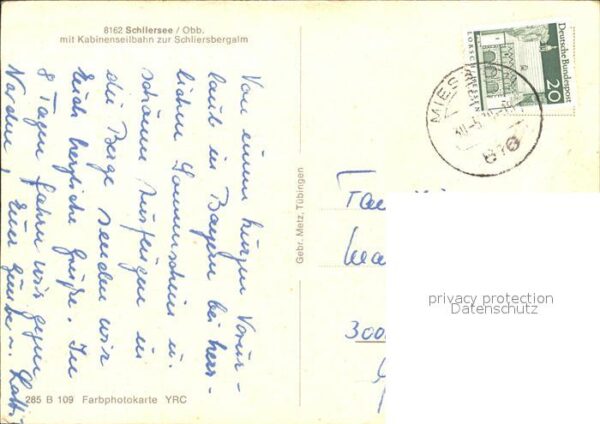 8162 Schliersee / Obb.
mit Kabinenseilbahn zur Schliersbergalm
Von einem kurzen Vorur-
laub in Bayern bei herr-
lichem Sonnenschein u.
schönen Ausflügen in
die Berge senden wir
Euch herzliche Grüße. In
8 Tagen fahren wir gegen
Norden, Eure Günter u.
285 B 109 Farbphotokarte YRC
Gebr. Metz, Tübingen
Deutsche Bundespost
20
LORSCH/HESSEN
MIES
816
Fa
300
privacy protection
Datenschutz